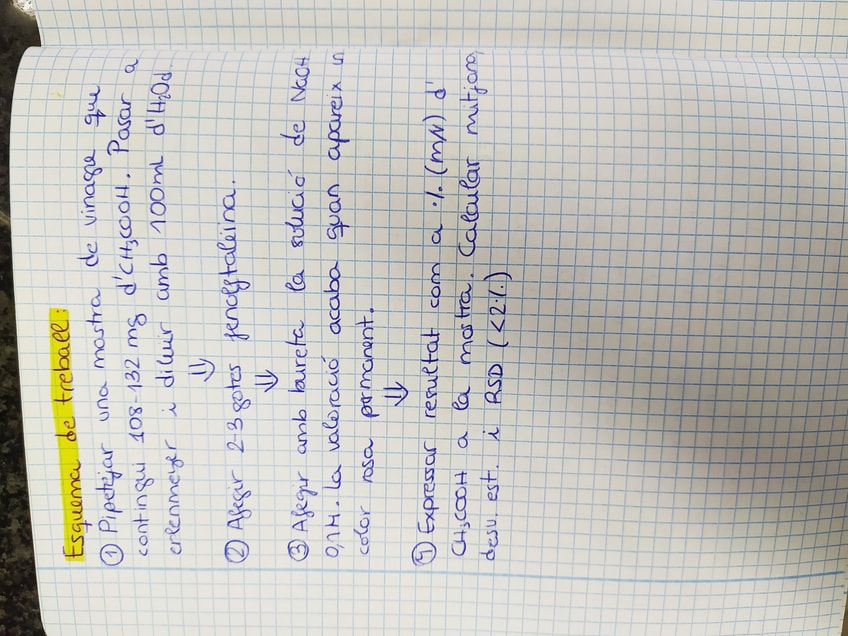 Esquema de treball:
① Pipetejar una mostra de vinagre que
contingui 108-132 mg d'CH₃COOH. Passar a
erlenmeyer i diluir amb 100mL d'H₂Od.
⇓
② Afegir 2-3 gotes fenolftaleïna.
⇓
③ Afegir amb bureta la solució de NaOH
0,1M. La valoració acaba quan apareix un
color rosa permanent.
⇓
④ Expressar resultat com a % (m/V) d'
CH₃COOH a la mostra. Calcular mitjana,
desv. est. i RSD (<2%)